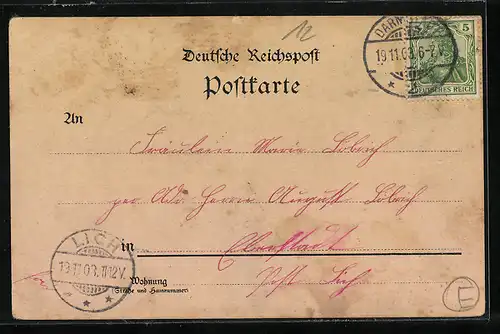 12
5
DEUTSCHES REICH
DARM
19.11.03. 6-7V.
Deutsche Reichspost
Postkarte
An
Fräulein Marie Löbrich
per Adr Herrn August Löbrich
in Eberstadt
Post Lich
LICH
19.11.03.11-12V.
Wohnung
(Straße und Hausnummer)
E